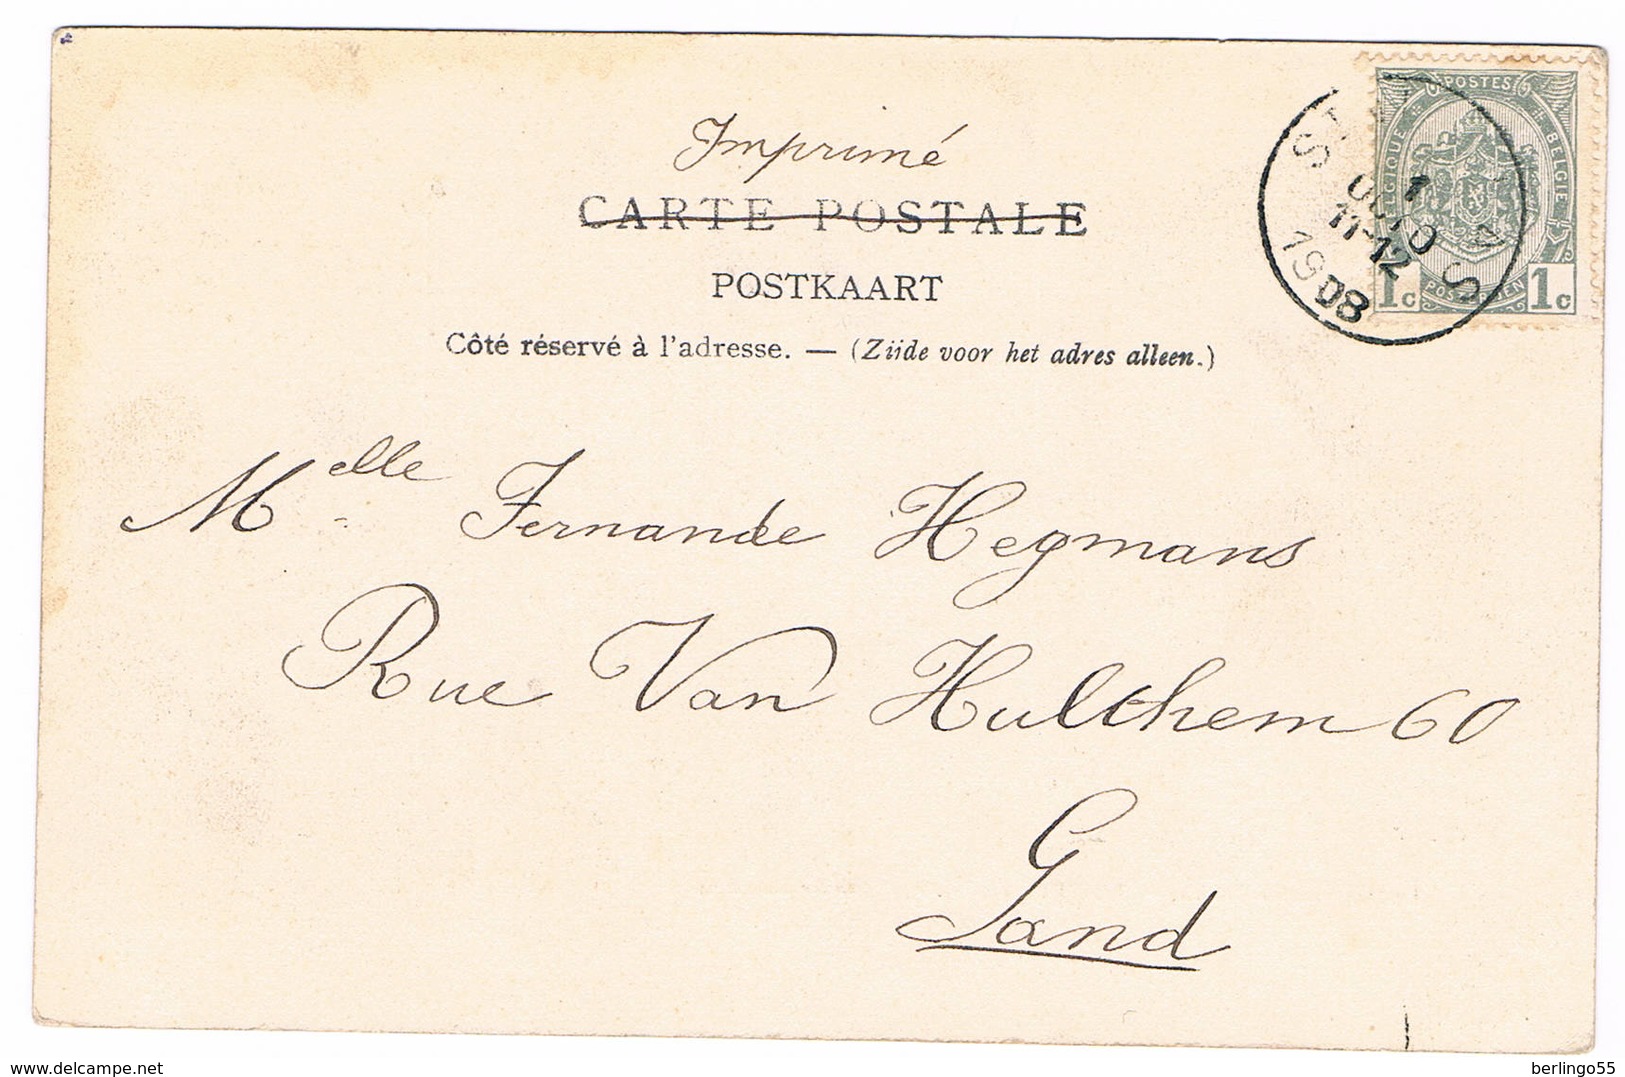 Imprimé
CARTE POSTALE
POSTKAART
Côté réservé à l'adresse. — (Zijde voor het adres alleen.)
POSTES
BELGIQUE
BELGIE
1c
1c
POSTERIJEN
1
11-12
1908
Melle Fernande Hegmans
Rue Van Hulthem 60
Gand
delcampe.net
berlingo55